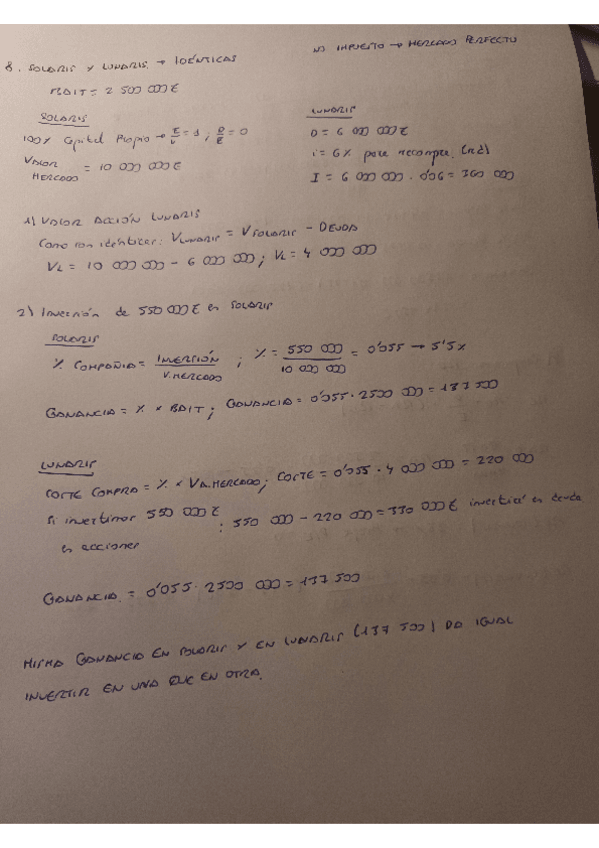 NO IMPUESTO → MERCADO PERFECTO
8. SOLARIS Y LUNARIS → IDÉNTICAS
BAIT = 2 500 000 €
SOLARIS
100% Capital Propio → E/V = 1 ; D/E = 0
VALOR MERCADO = 10 000 000 €
LUNARIS
D = 6 000 000 €
i = 6% para recompra (rd)
I = 6 000 000 · 0'06 = 360 000
1) VALOR ACCIÓN LUNARIS
Como son idénticas: VLUNARIS = VSOLARIS - DEUDA
VL = 10 000 000 - 6 000 000 ; VL = 4 000 000
2) Inversión de 550 000 € en SOLARIS
SOLARIS
% COMPAÑIA = INVERSIÓN / V.MERCADO ; % = 550 000 / 10 000 000 = 0'055 → 5'5%
GANANCIA = % × BAIT ; GANANCIA = 0'055 · 2500 000 = 137 500
LUNARIS
COSTE COMPRA = % × VA.MERCADO ; COSTE = 0'055 · 4 000 000 = 220 000
Si invertimos 550 000 € en acciones : 550 000 - 220 000 = 330 000 € invertiá en deuda
GANANCIA = 0'055 · 2500 000 = 137 500
MISMA GANANCIA EN SOLARIS Y EN LUNARIS (137 500) DA IGUAL
INVERTIR EN UNA QUE EN OTRA.